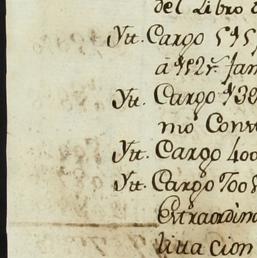 del Libro
Ytt. Cargo 515
á 152r. Jan
Ytt. Cargo 138
mo Conv
Ytt. Cargo 400
Ytt. Cargo 700
Extraordin
litta cion